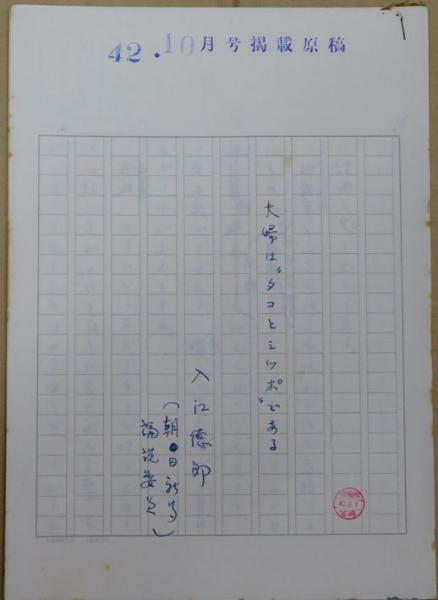 42.10月号掲載原稿
夫婦は"タコとミツボ"である
入江徳郎
(朝日新聞
論説委員)